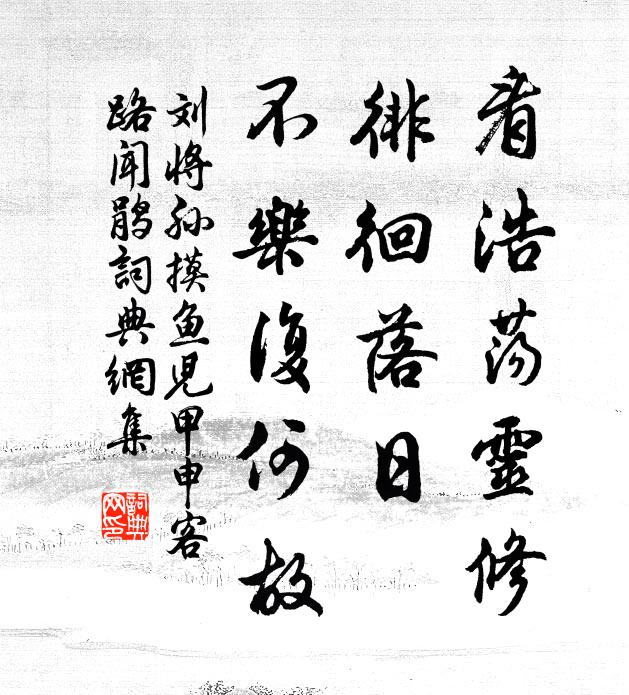 看浩荡靈修
徘徊落日
不樂復何故
刘將孙摸鱼児甲申客
路闻鹃詞典網集
詞典網印